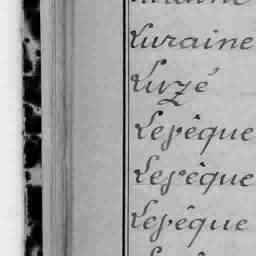 Luraine
Luzé
Lesêque
Lesêque
Lesêque